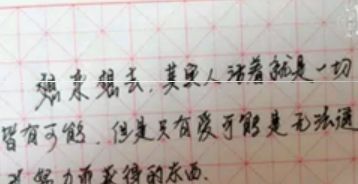 想来想去,其实人活着就是一切
皆有可能.但是只有爱可能是无法通
过努力而获得的东西.